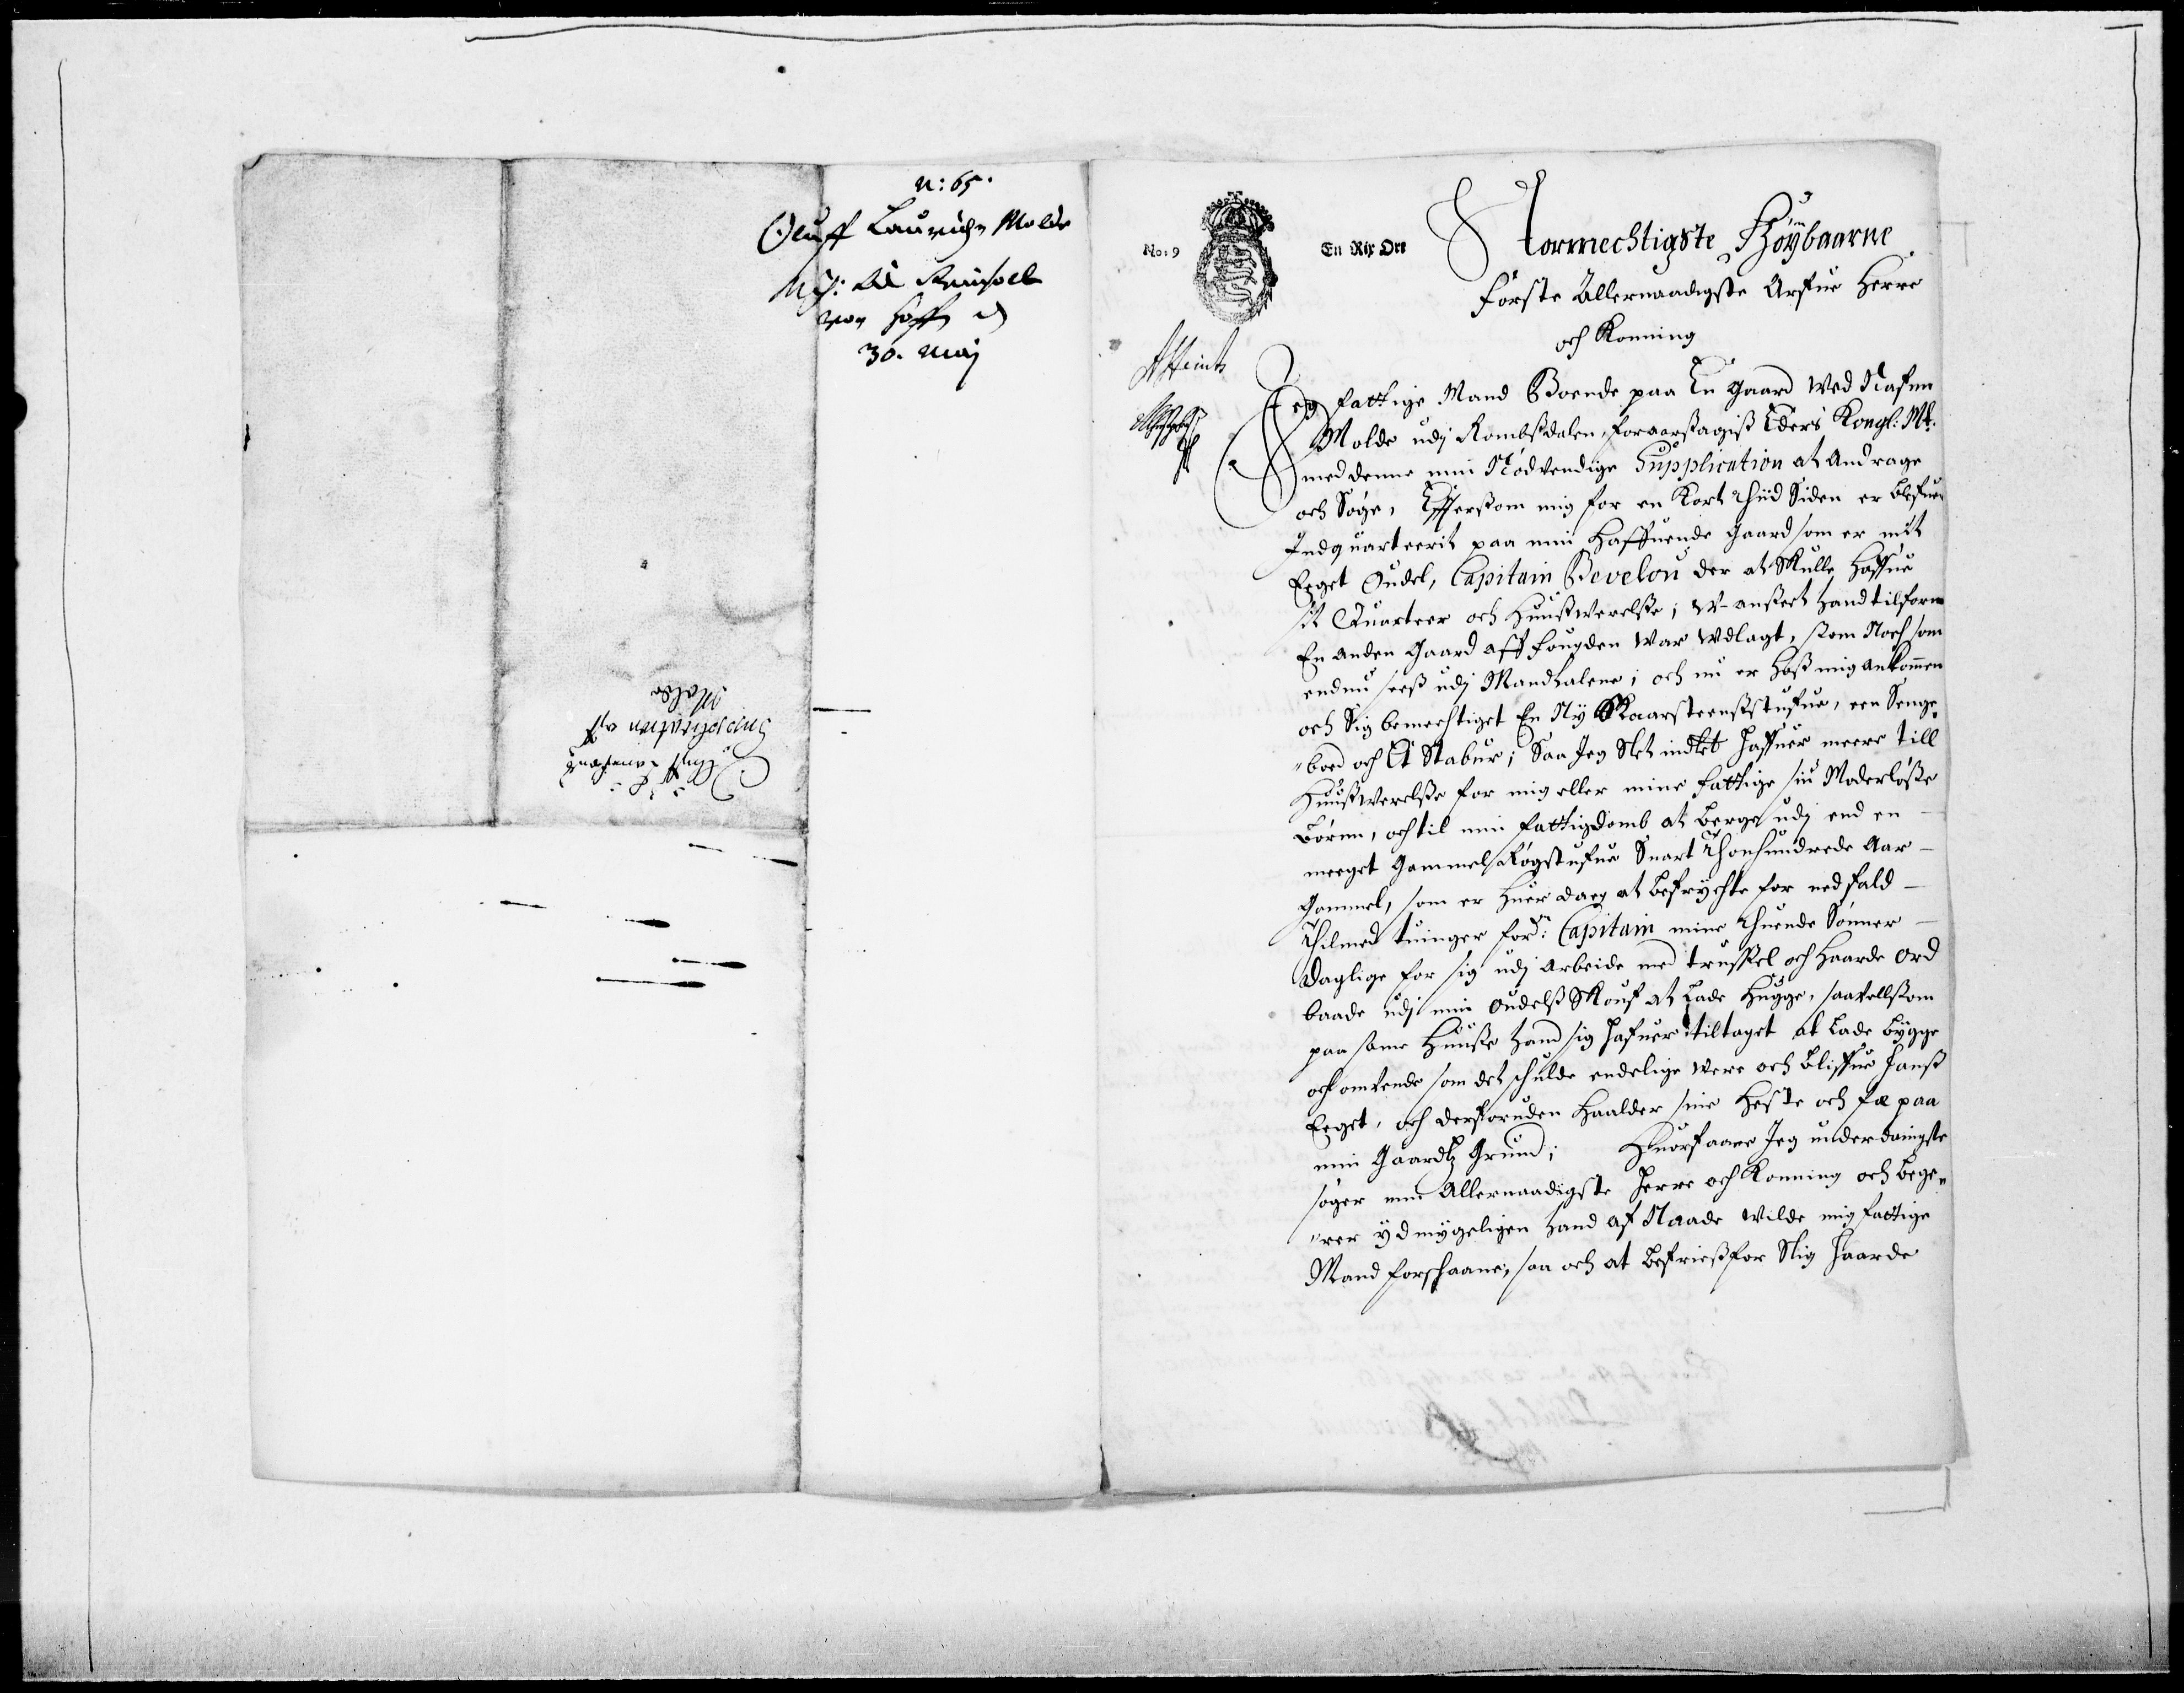 N: 65.
Oluff Laurichs Molde
30. Maj
Oluff Lauritzens
Supplication aff
Molde
No: 9
En Rix Ort
Stormechtigste Høÿbaarne
Første Allernaadigste Arfue Herre
och Konning
Jeg fattige Mand Boende paa En gaard wed Nafnn
Molde udj Rombsdalen, foraarsagis Eders Kongl: Mt.
med denne min Nødvendige Supplication at Andrage
och Søge, Effterssom mig for en Kort Thiid Siden er blefuen
Indquarteerit paa min haffuende gaard som er mit
Eeget Oudel, Capitain Bevelou der at skulle haffue
sit Quarteer och huuswerelsse; W-anseet hand tilforn
En anden Gaard aff Fougden war wdlagt, som Noch som
endnu sees udj Mandtalene; och nu er hos mig ankommen
och Sig bemechtiget En Ny Skaarsteensstufue, een Senge¬
"boed och Et Stabur; Saa Jeg Slet indtet haffuer meere till
Huuswerelsse for mig eller mine fattige siu Moderløsse
Børnn, och til min fattigdomb at berge udj end en
meeget Gammel Røgstufue Snart Thouhundrede Aar
Gammel, som er huer daeg at befrychte for nedfald
Thilmed tuinger forn: Capitain mine Thuende Sønner
Daglige for sig udj Arbeide med trussel och haarde ord
baade udj min oudels Skouf at lade hugge, saavellsom
paa same huuse hand sig hafuer tiltaget at lade bygge
och omvende som det schulde endelige were och bliffue hans
Eeget, och derforuden haalder sine heste och fæ paa
min Gaardtz Grund; Huorfaare Jeg underdanigste
søger min Allernaadigste Herre och Konning och bege¬
"rer ydmygeligen hand af Naade wilde mig fattige
Mand forschaane, saa och at befries for Slig haarde